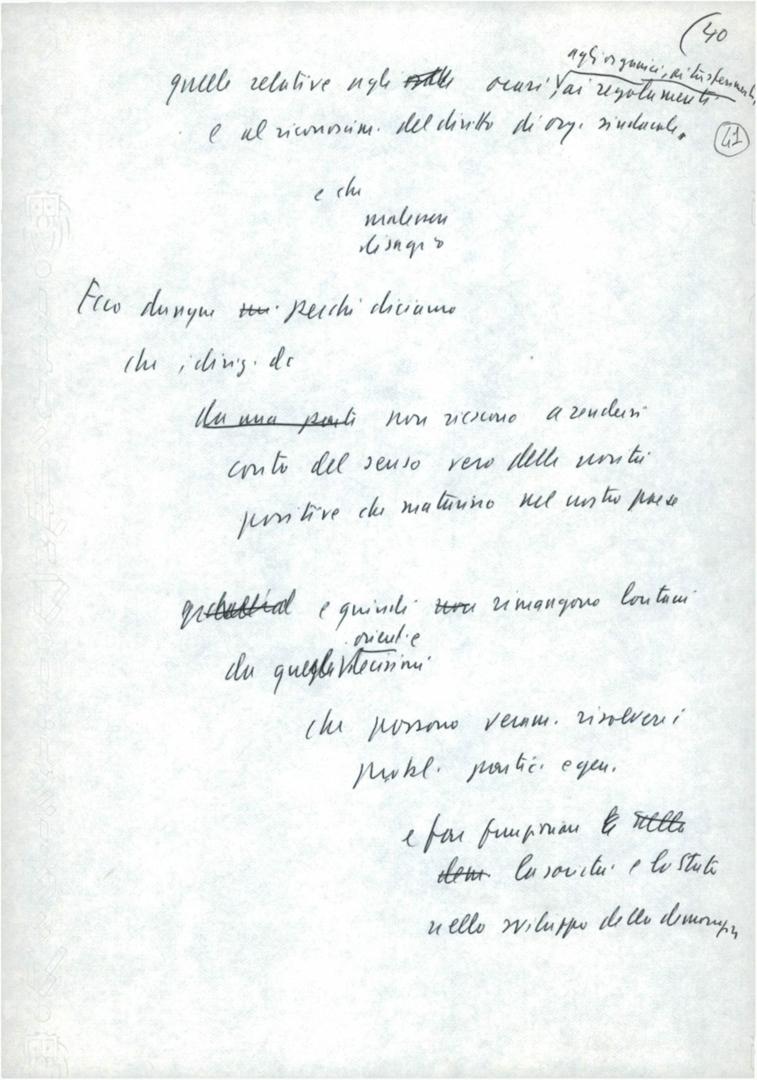 (40
agli organici, ai trasferimenti,
quelle relative agli orari, ai regolamenti
e al riconoscim. del diritto di org. sindacale.
41
e che
malessere
disagio
Ecco dunque perché diciamo
che i dirig. dc
da una parte non riescono a rendersi
conto del senso vero delle novità
positive che maturano nel nostro paese
e quindi non rimangono lontani
orient. e
da quelle decisioni
che possono veram. risolvere i
probl. partic. e gen.
e far funzionare
dem. la società e lo Stato
nello sviluppo della democrazia